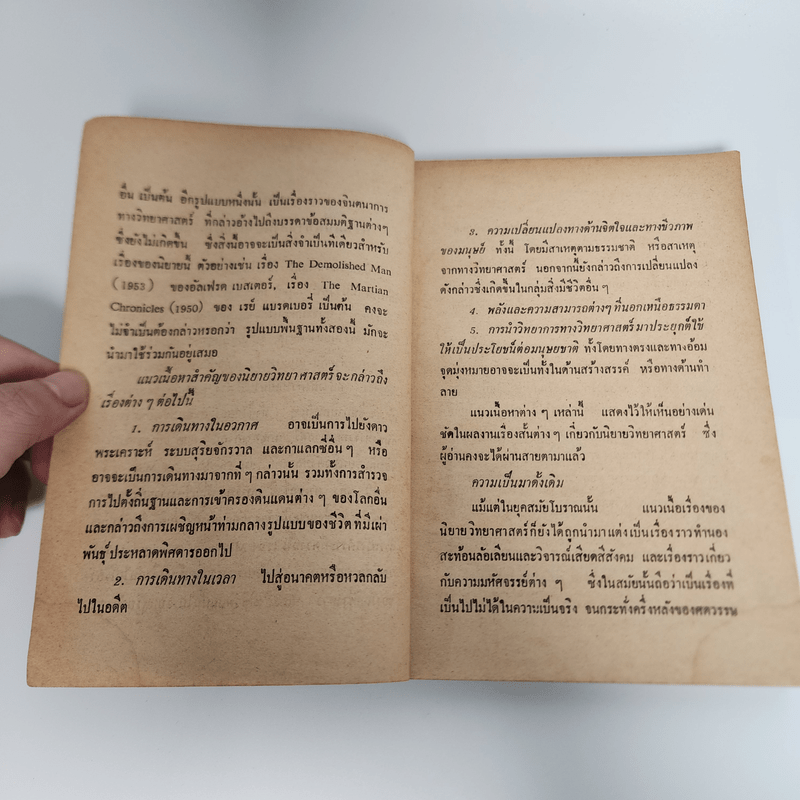 อื่น เป็นต้น อีกรูปแบบหนึ่งนั้น เป็นเรื่องราวของจินตนาการ
ทางวิทยาศาสตร์ ที่กล่าวอ้างไปถึงบรรดาข้อสมมติฐานต่างๆ
ซึ่งยังไม่เกิดขึ้น ซึ่งสิ่งนี้อาจจะเป็นสิ่งจำเป็นทีเดียวสำหรับ
เรื่องของนิยายนี้ ตัวอย่างเช่น เรื่อง The Demolished Man
(1953) ของอัลเฟรด เบสเตอร์, เรื่อง The Martian
Chronicles (1950) ของ เรย์ แบรดเบอรี่ เป็นต้น คงจะ
ไม่จำเป็นต้องกล่าวหรอกว่า รูปแบบพื้นฐานทั้งสองนี้ มักจะ
นำมาใช้ร่วมกันอยู่เสมอ
แนวเนื้อหาสำคัญของนิยายวิทยาศาสตร์จะกล่าวถึง
เรื่องต่าง ๆ ต่อไปนี้
1. การเดินทางในอวกาศ อาจเป็นการไปยังดาว
พระเคราะห์ ระบบสุริยจักรวาล และกาแลกซี่อื่น ๆ หรือ
อาจจะเป็นการเดินทางมาจากที่ ๆ กล่าวนั้น รวมทั้งการสำรวจ
การไปตั้งถิ่นฐานและการเข้าครองดินแดนต่าง ๆ ของโลกอื่น
และกล่าวถึงการเผชิญหน้าท่ามกลางรูปแบบของชีวิต ที่มีเผ่า
พันธุ์ ประหลาดพิศดารออกไป
2. การเดินทางในเวลา ไปสู่อนาคตหรือหวลกลับ
ไปในอดีต
3. ความเปลี่ยนแปลงทางด้านจิตใจและทางชีวภาพ
ของมนุษย์ ทั้งนี้ โดยมีสาเหตุตามธรรมชาติ หรือสาเหตุ
จากทางวิทยาศาสตร์ นอกจากนี้ยังกล่าวถึงการเปลี่ยนแปลง
ดังกล่าวซึ่งเกิดขึ้นในกลุ่มสิ่งมีชีวิตอื่น ๆ
4. พลังและความสามารถต่างๆ ที่นอกเหนือธรรมดา
5. การนำวิทยาการทางวิทยาศาสตร์ มาประยุกต์ใช้
ให้เป็นประโยชน์ต่อมนุษยชาติ ทั้งโดยทางตรงและทางอ้อม
จุดมุ่งหมายอาจจะเป็นทั้งในด้านสร้างสรรค์ หรือทางด้านทำ
ลาย
แนวเนื้อหาต่าง ๆ เหล่านี้ แสดงไว้ให้เห็นอย่างเด่น
ชัดในผลงานเรื่องสั้นต่าง ๆ เกี่ยวกับนิยายวิทยาศาสตร์ ซึ่ง
ผู้อ่านคงจะได้ผ่านสายตามาแล้ว
ความเป็นมาดั้งเดิม
แม้แต่ในยุคสมัยโบราณนั้น แนวเนื้อเรื่องของ
นิยายวิทยาศาสตร์ก็ยังได้ถูกนำมาแต่งเป็นเรื่องราวทำนอง
สะท้อนล้อเลียนและวิจารณ์เสียดสีสังคม และเรื่องราวเกี่ยว
กับความมหัศจรรย์ต่าง ๆ ซึ่งในสมัยนั้นถือว่าเป็นเรื่องที่
เป็นไปไม่ได้ในความเป็นจริง จนกระทั่งครึ่งหลังของศตวรรษ